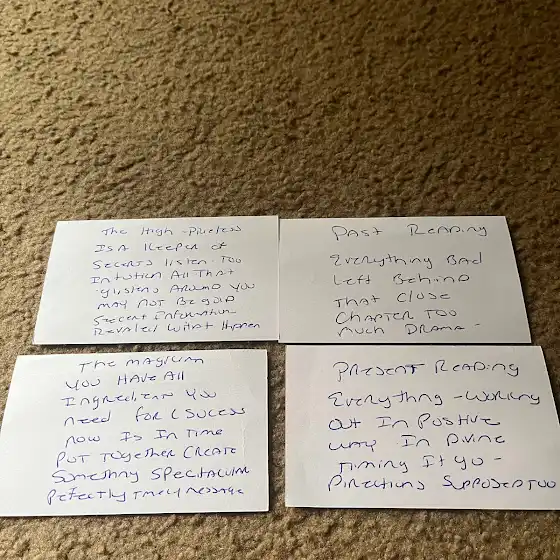 The High-Priestess
Is A Keeper of
Secerts listen. Too
Intution All That
glistens Around you
MAY Not Be gold
Seecret Information-
Revaled What Happen
Past Reading
Everything Bad
Left Behind
That Close
Chapter Too
Much Drama-
The Magician
You Have All
Ingredients You
need for Sucess
now Is In Time
Put Together Create
Something Specitacular
Pefectly Timely Message
Present Reading
Everything-Working
Out In Postive
way In Divine
Timing It yo-
Directions Supposed Too